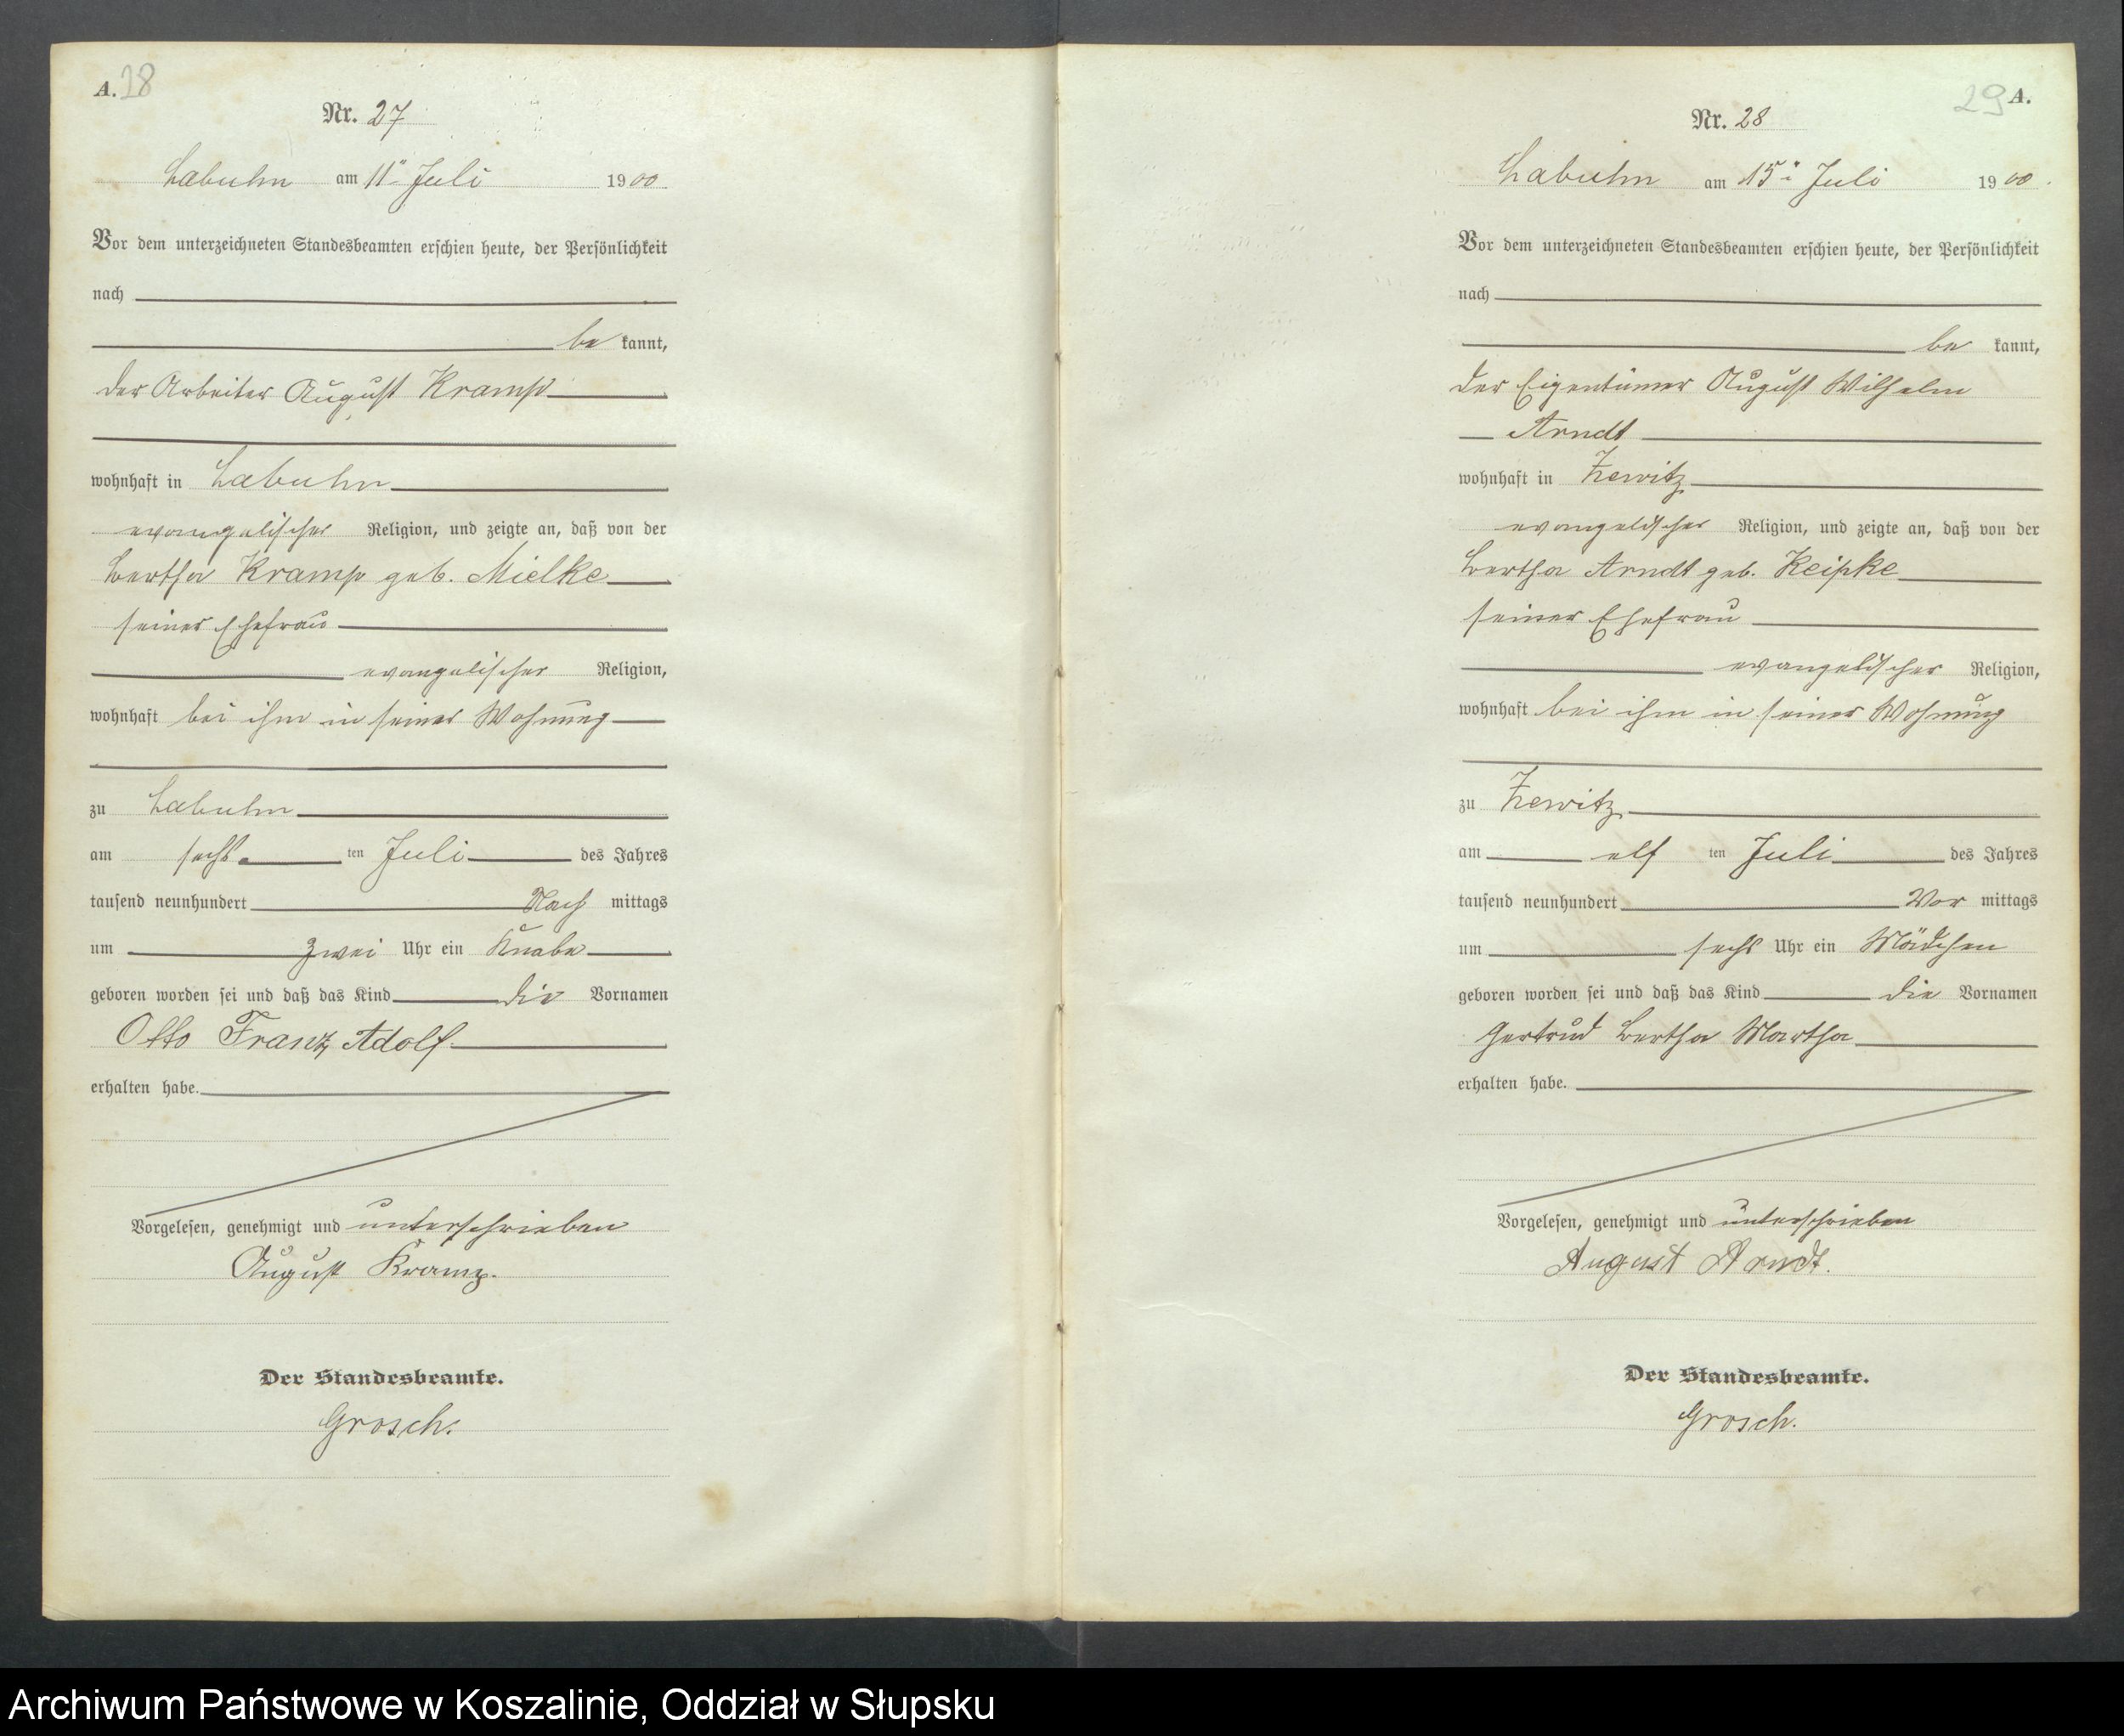 A. 28
Nr. 27
Labuhn am 11ⁿ Juli 1900
Vor dem unterzeichneten Standesbeamten erschien heute, der Persönlichkeit
nach
be kannt,
der Arbeiter August Kramp
wohnhaft in Labuhn
evangelischer Religion, und zeigte an, daß von der
Bertha Kramp geb. Mielke
seiner Ehefrau
evangelischer Religion,
wohnhaft bei ihm in seiner Wohnung
zu Labuhn
am sechs ten Juli des Jahres
tausend neunhundert Nach mittags
um zwei Uhr ein Knabe
geboren worden sei und daß das Kind die Vornamen
Otto Franz Adolf
erhalten habe.
Vorgelesen, genehmigt und unterschrieben
August Kramp.
Der Standesbeamte.
Grosch.
29 A.
Nr. 28
Labuhn am 15ⁿ Juli 1900.
Vor dem unterzeichneten Standesbeamten erschien heute, der Persönlichkeit
nach
be kannt,
der Eigentümer August Wilhelm
Arndt
wohnhaft in Zewitz
evangelischer Religion, und zeigte an, daß von der
Bertha Arndt geb. Reipke
seiner Ehefrau
evangelischer Religion,
wohnhaft bei ihm in seiner Wohnung
zu Zewitz
am elf ten Juli des Jahres
tausend neunhundert Vor mittags
um sechs Uhr ein Mädchen
geboren worden sei und daß das Kind die Vornamen
Gertrud Bertha Martha
erhalten habe.
Vorgelesen, genehmigt und unterschrieben
August Arndt.
Der Standesbeamte.
Grosch.
Archiwum Państwowe w Koszalinie, Oddział w Słupsku